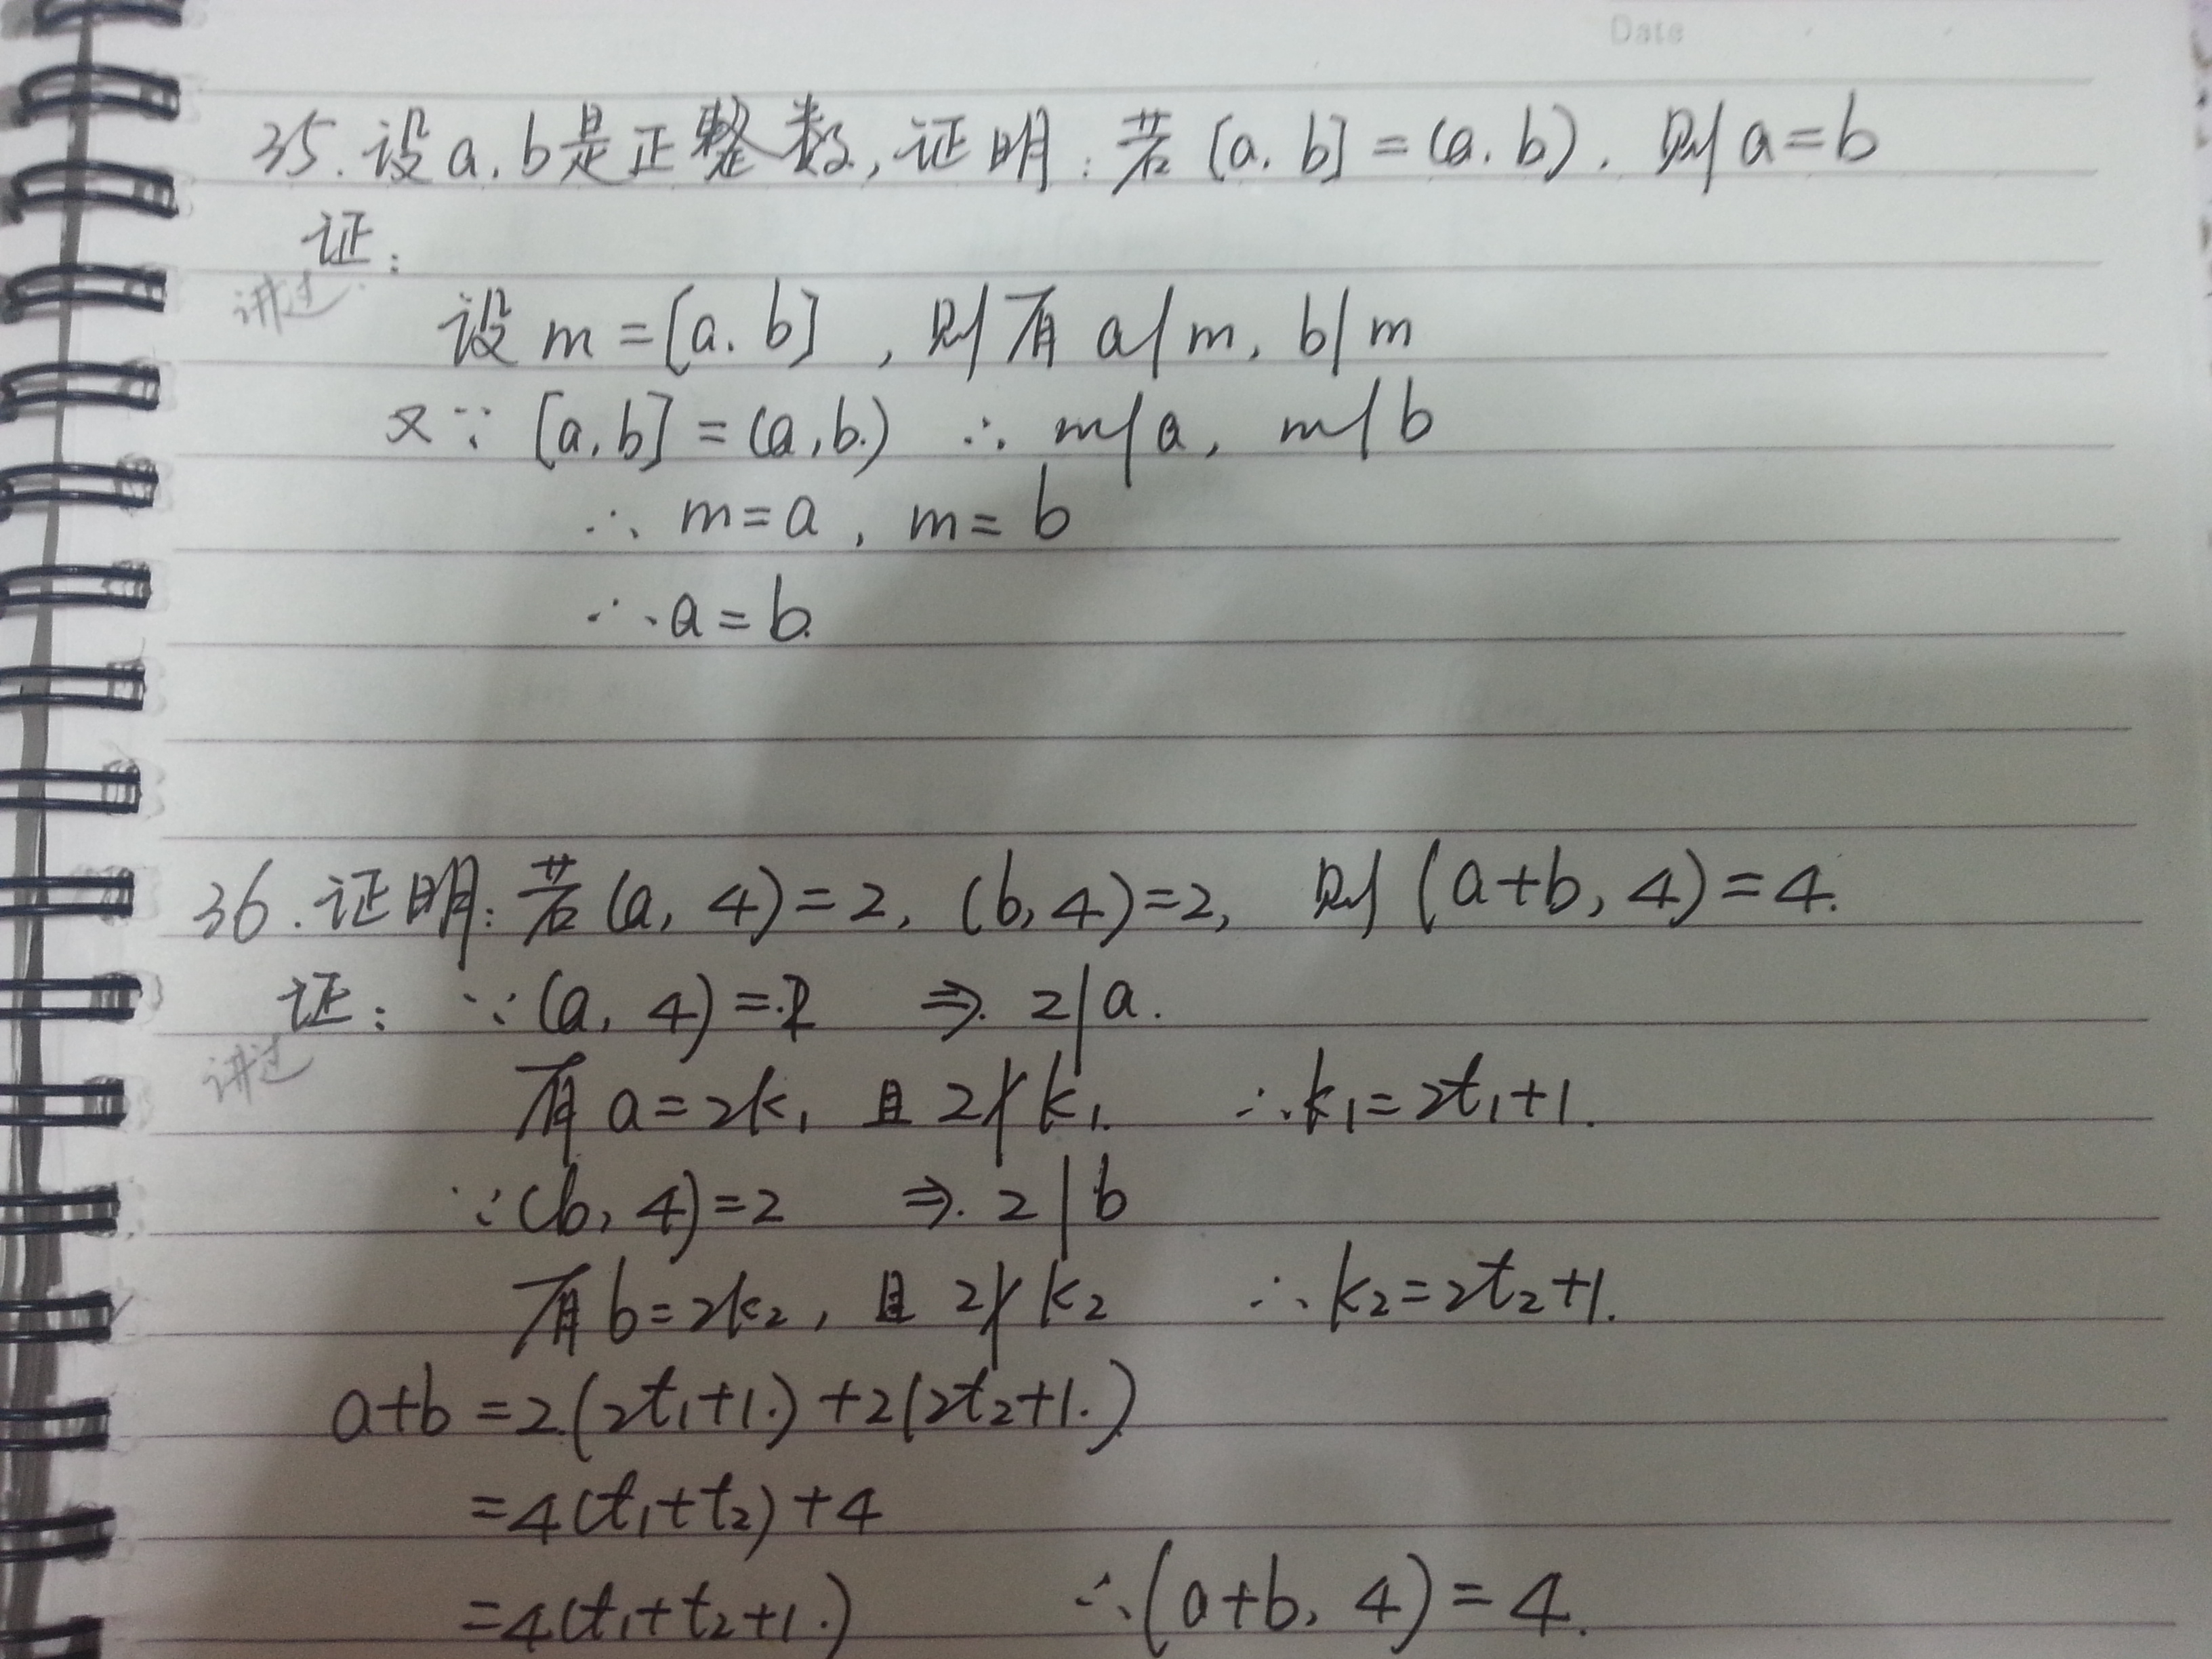 Date
35. 设a, b是正整数, 证明: 若[a, b]=(a, b), 则a=b
证:
讲过
设m=[a, b], 则有a|m, b|m
又∵ [a, b]=(a, b) ∴ m|a, m|b
∴ m=a, m=b
∴ a=b.
36. 证明: 若(a, 4)=2, (b, 4)=2, 则(a+b, 4)=4.
证: ∵(a, 4)=2 ⇒ 2|a.
讲过
有a=2k₁ 且2∤k₁. ∴k₁=2t₁+1.
∵(b, 4)=2 ⇒ 2|b
有b=2k₂, 且2∤k₂ ∴k₂=2t₂+1.
a+b=2(2t₁+1)+2(2t₂+1)
=4(t₁+t₂)+4
=4(t₁+t₂+1) ∴(a+b, 4)=4.